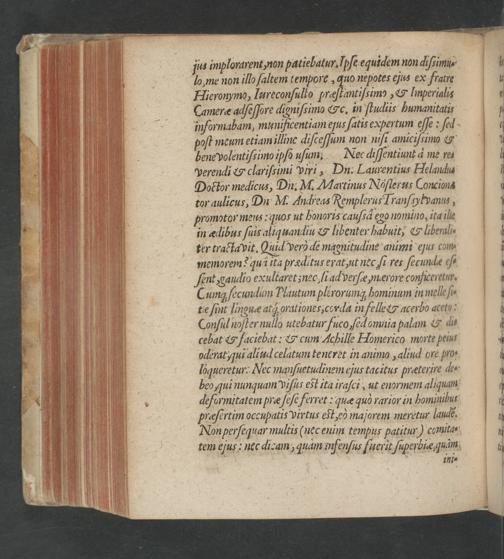 jus implorarent, non patiebatur. Ipse equidem non dissimu-
lo, me non illo saltem tempore, quo nepotes ejus ex fratre
Hieronymo, Iureconsulto præstantissimo, & Imperialis
Cameræ adsessore dignissimo &c. in studiis humanitatis
informabam, munificentiam ejus satis expertum esse: sed
post meum etiam illinc discessum non nisi amicissimo &
benevolentissimo ipso usum. Nec dissentiunt à me re-
verendi & clarissimi viri, Dn. Laurentius Helandus
Doctor medicus, Dn. M. Martinus Nöslerus Conciona-
tor aulicus, Dn M. Andreas Remplerus Transsylvanus,
promotor meus: quos ut honoris caussâ ego nomino, ita ille
in ædibus suis aliquandiu & libenter habuit, & liberali-
ter tractavit. Quid verò de magnitudine animi ejus com-
memorem? quâ ita præditus erat, ut nec si res secundæ es-
sent, gaudio exultaret; nec, si adversæ, mœrore conficeretur.
Cumq; secundùm Plautum plerorumq; hominum in melle si-
tæ sint linguæ atq; orationes, corda in felle & acerbo aceto:
Consul noster nullo utebatur fuco, sed omnia palam & di-
cebat & faciebat: & cum Achille Homerico morte pejus
oderat, qui aliud celatum teneret in animo, aliud ore pro-
loqueretur. Nec mansuetudinem ejus tacitus præterire de-
beo, qui nunquam visus est ita irasci, ut enormem aliquam
deformitatem præ se ferret: quæ quò rarior in hominibus
præsertim occupatis virtus est, eò majorem meretur laudē.
Non persequar multis (nec enim tempus patitur) comita-
tem ejus: nec dicam, quàm infensus fuerit superbiæ, quàm
ini-